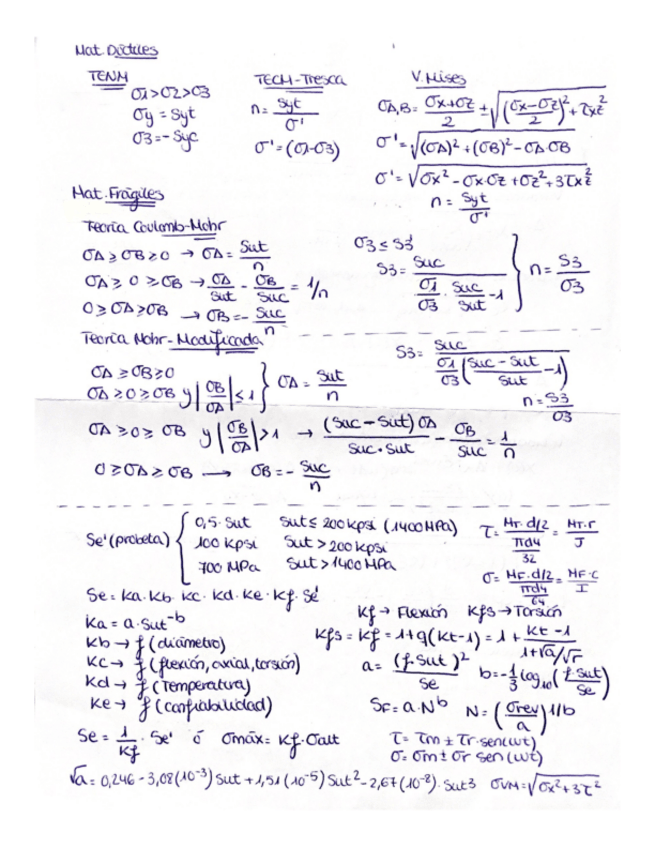 Mat. Dúctiles
TENM
σ1>σ2>σ3
σy = Syt
σ3=-Syc
TECM-Tresca
n= Syt/σ'
σ'=(σ1-σ3)
V. Mises
σA,B= (σx+σz)/2 ± √((σx-σz)/2)² + τxz²
σ'=√(σA)²+(σB)²-σA·σB
σ'=√σx²-σx·σz+σz²+3τxz²
n= Syt/σ'
Mat. Frágiles
Teoría Coulomb-Mohr
σA ≥ σB ≥ 0 → σA= Sut/n
σA ≥ 0 ≥ σB → σA/Sut - σB/Suc = 1/n
0 ≥ σA ≥ σB → σB=- Suc/n
σ3 ≤ S3
S3= Suc/(σ1/σ3 · Suc/Sut -1)
} n= S3/σ3
Teoría Mohr-Modificada
σA ≥ σB ≥ 0
σA ≥ 0 ≥ σB y |σB/σA| ≤ 1 } σA= Sut/n
σA ≥ 0 ≥ σB y |σB/σA| > 1 → (Suc-Sut)σA/(Suc·Sut) - σB/Suc = 1/n
0 ≥ σA ≥ σB → σB=- Suc/n
S3= Suc/(σ1/σ3 ((Suc-Sut)/Sut -1))
n= S3/σ3
Se' (probeta) { 0,5·Sut Sut ≤ 200 kpsi (1400 MPa)
100 kpsi Sut > 200 kpsi
700 MPa Sut > 1400 MPa
τ= (MT·d/2)/(πd4/32) = MT·r/J
σ= (MF·d/2)/(πd4/64) = MF·c/I
Se= ka·kb·kc·kd·ke·kf·Se'
ka= a·Sut^-b
kb → f (diámetro)
kc → f (flexión, axial, torsión)
kd → f (Temperatura)
ke → f (confiabilidad)
kf → Flexión kfs → Torsión
kfs=kf=1+q(kt-1)=1+ (kt-1)/(1+√a/√r)
a= (f·Sut)²/Se b=-1/3 log10(f·Sut/Se)
SF= a·N^b N= (σrev/a)^1/b
Se= 1/kf · Se' ó σmáx= kf·σalt
τ= τm ± τr·sen(ωt)
σ= σm ± σr sen(ωt)
√a= 0,246-3,08(10^-3)Sut+1,51(10^-5)Sut²-2,67(10^-8)·Sut3 σVM=√σx²+3τ²